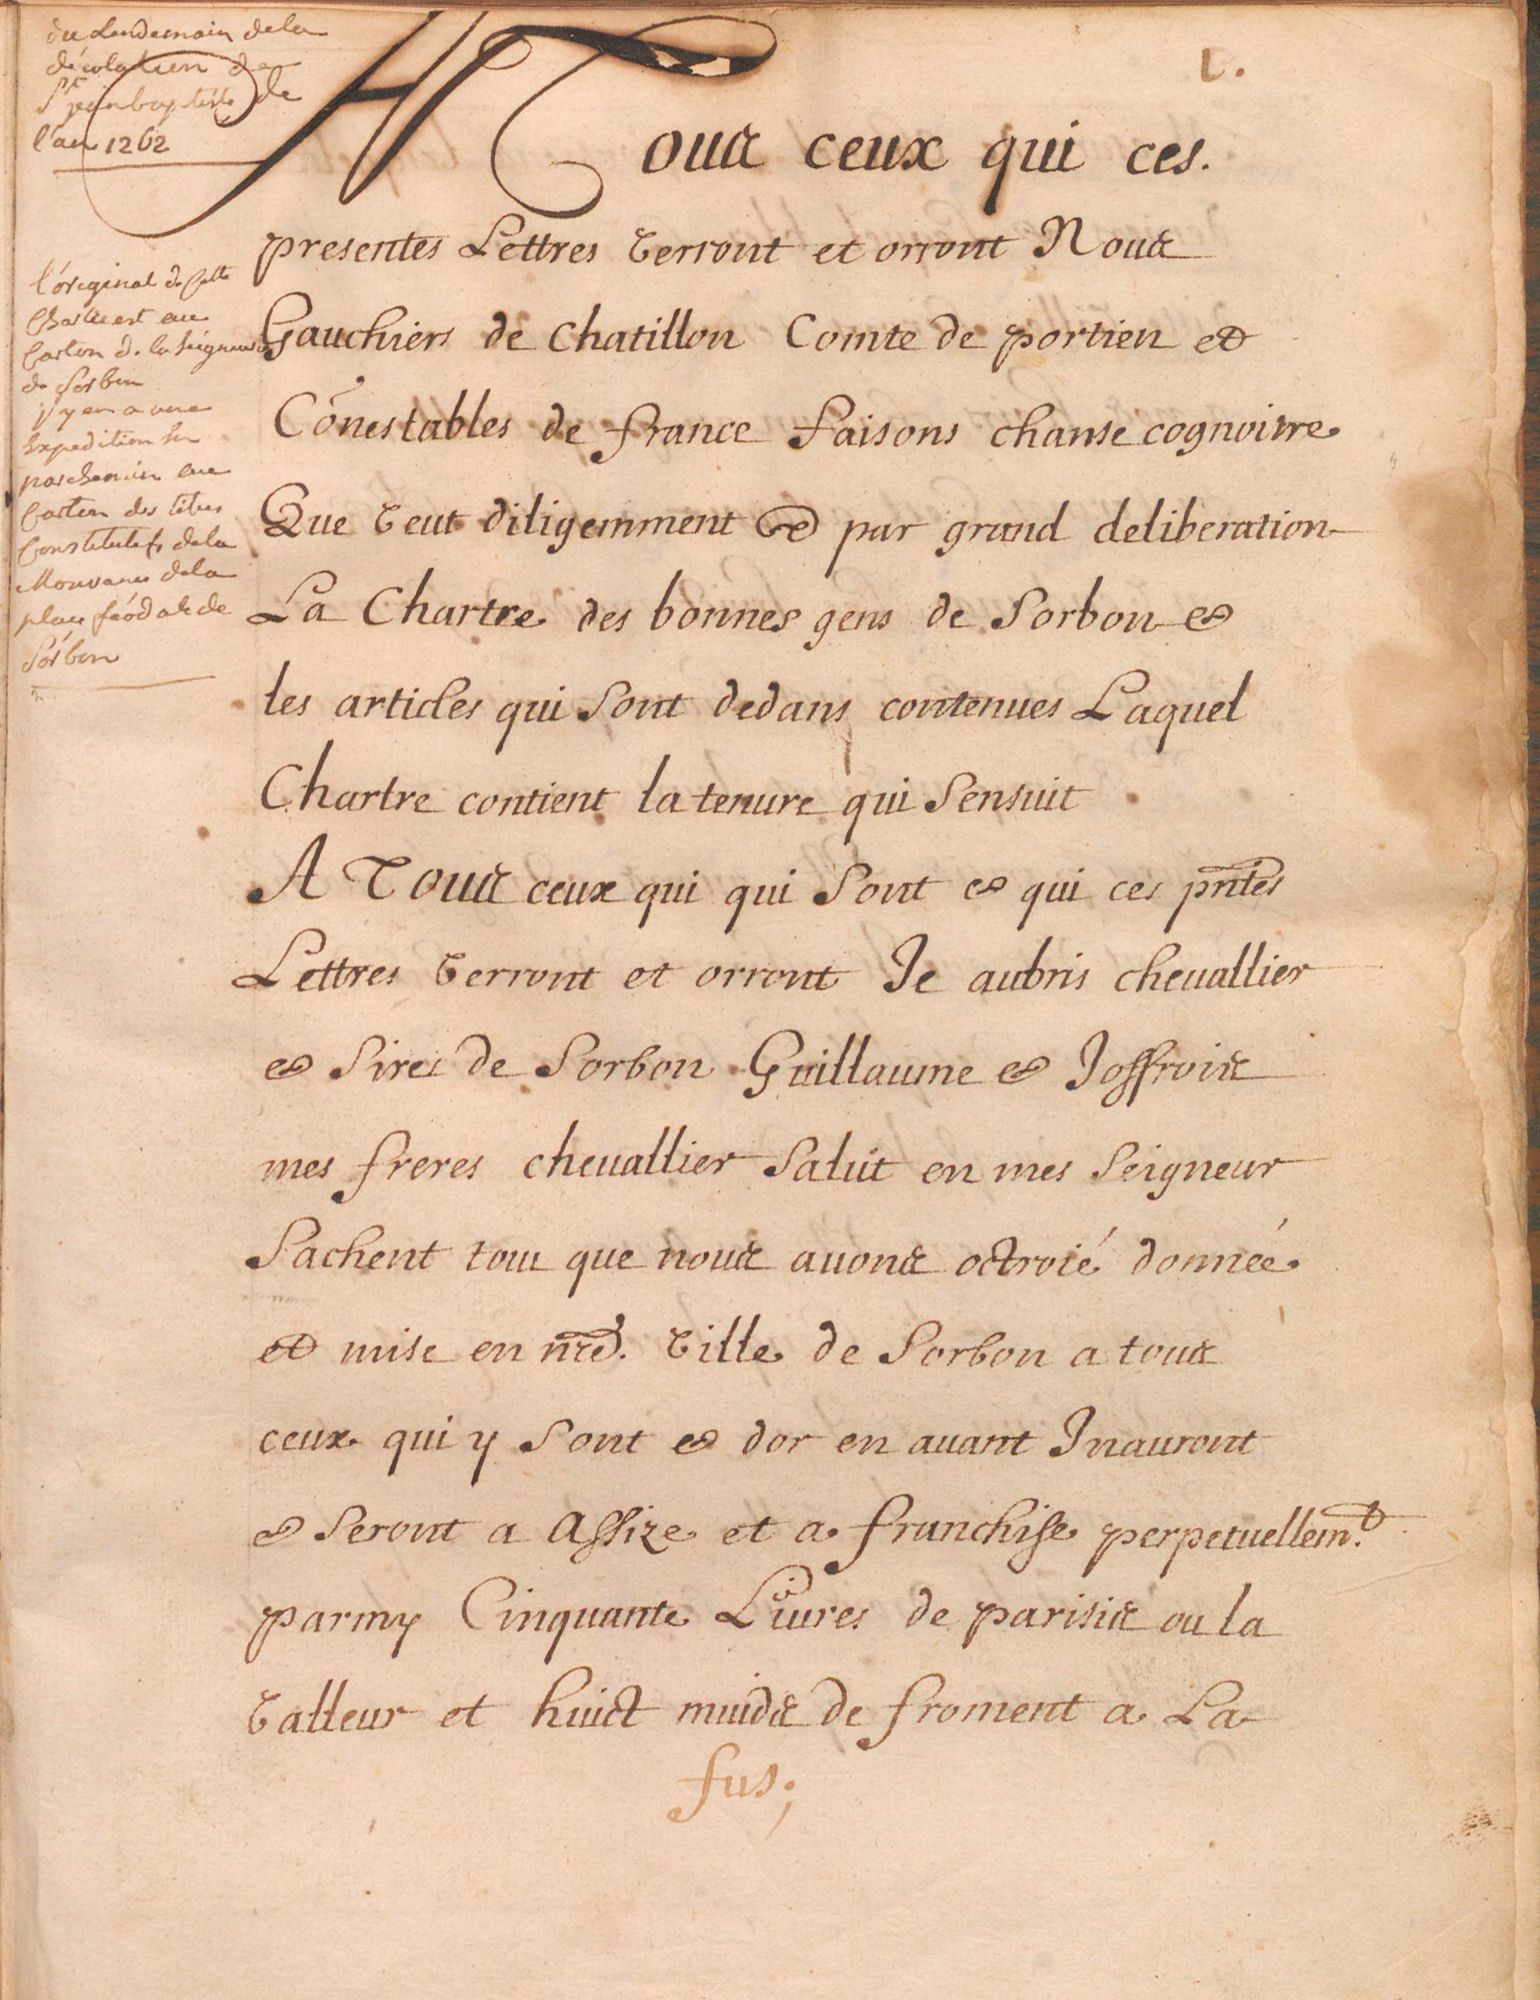 du Lendemain de la
décolation de
St jean baptiste de
l'an 1262
1.
A Tous ceux qui ces.
presentes Lettres Verront et orront Nous
Gauchiers de Chatillon Comte de portien et
Cõnestables de france faisons chanse cognoitre
Que Veut diligemment et par grand deliberation
La Chartre des bonnes gens de Sorbon et
les articles qui sont dedans contenues Laquel
Chartre contient la tenure qui Sensuit
A Tous ceux qui qui Sont et qui ces pñtes
Lettres Verront et orront Je aubris cheuallier
et Sires de Sorbon Guillaume et Joffrois
mes freres cheuallier Salut en mes Seigneur
Sachent tous que nous auons octroié donnée
et mise en nr̃e. Ville de Sorbon a tous
ceux qui y sont et dor en auant Inauront
et seront a Assize et a franchise perpetuellemt.
parmy Cinquante Liures de parisis ou la
Valleur et huict muids de froment a La
fus;
l'original de cette
Chartre est au
Carton de la seigneurie
de Sorbon
il y en a une
Expedition en
parchemin au
Carton des titres
Constitutifs de la
Mouvance de la
place féodale de
Sorbon